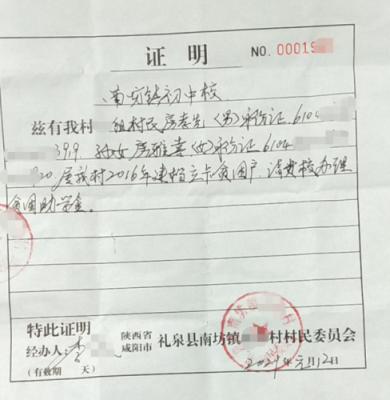 证明 NO. 00019
南坊镇初中校
兹有我村 组村民房 (男)身份证6104
399 孙女房雅 (女)身份证6104
20 属我村2016年建档立卡贫困户 请贵校办理
贫困助学金。
特此证明 陕西省 咸阳市 礼泉县南坊镇 村村民委员会
经办人:李
(有效期 天) 2021年元月12日